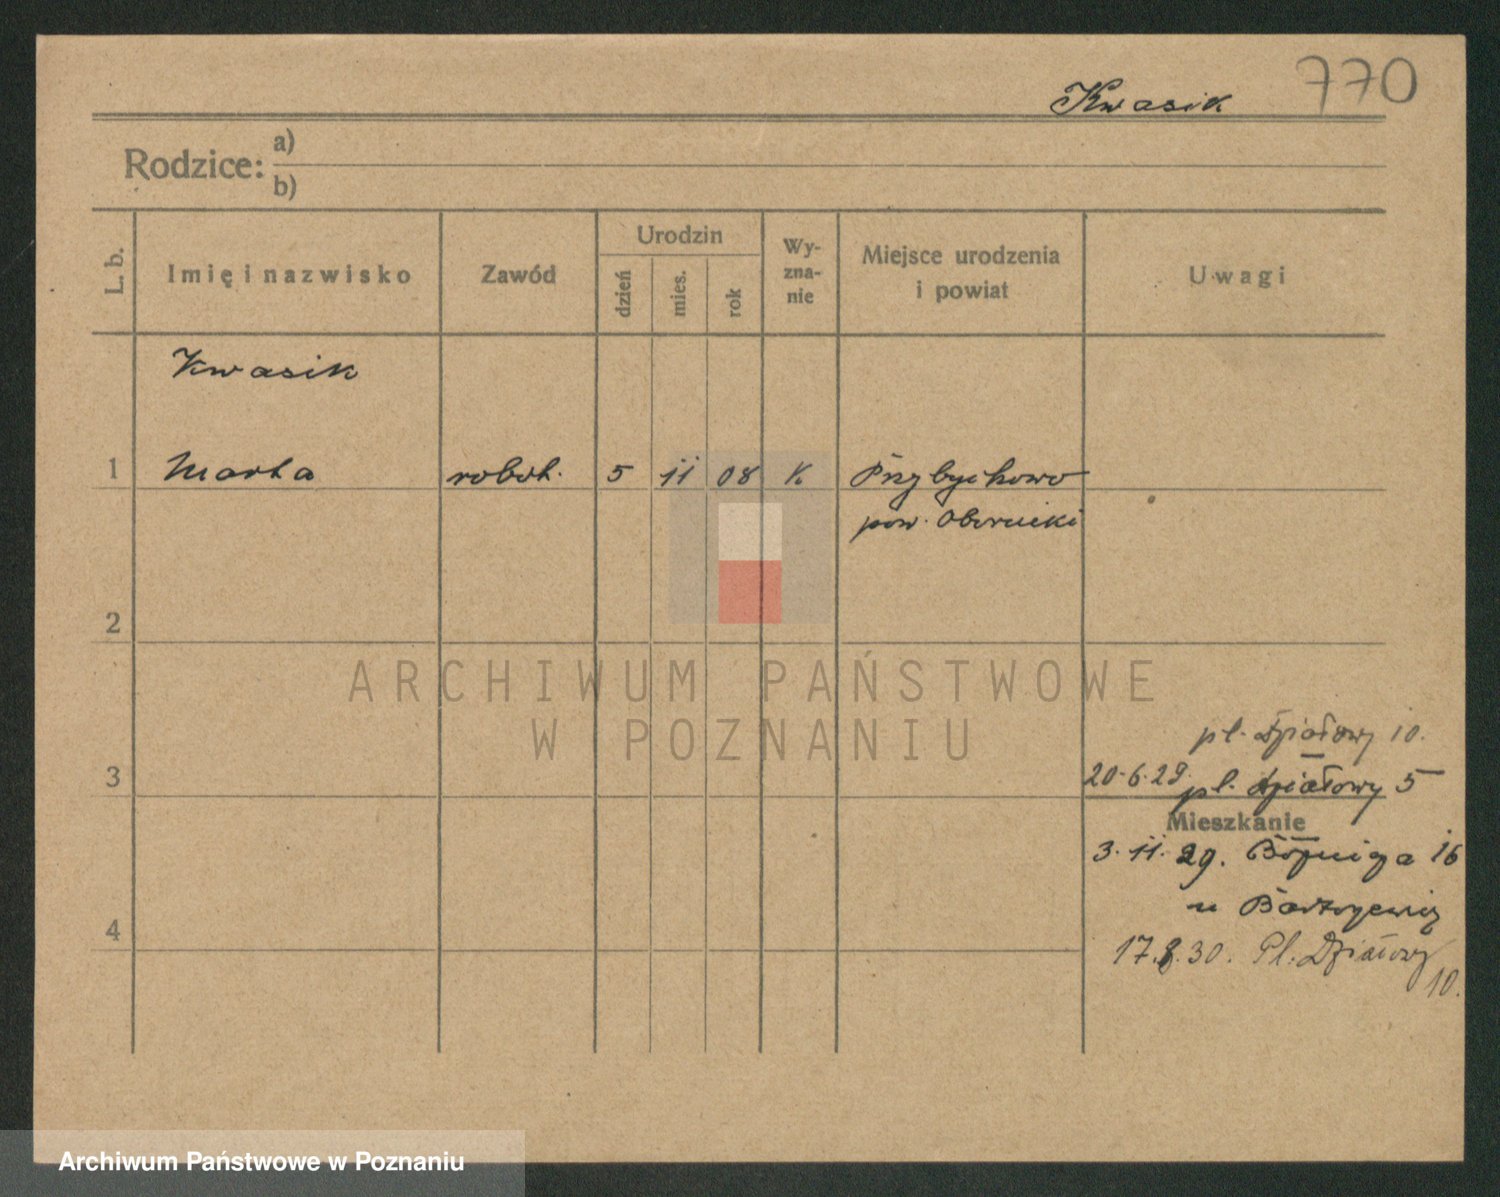 770
Kwasik
Rodzice: a)
b)
L. b.
Imię i nazwisko
Zawód
Urodzin
dzień
mies.
rok
Wy-
zna-
nie
Miejsce urodzenia
i powiat
Uwagi
Kwasik
1 Marta robot. 5 11 08 K Przybychowo
pow. Obornicki
2
ARCHIWUM PAŃSTWOWE
W POZNANIU
pl. Działowy 10.
3
20.6.29. pl. Działowy 5
Mieszkanie
3.11.29. Bóżnicza 16
u
4
17.8.30. Pl. Działowy
10.
Archiwum Państwowe w Poznaniu